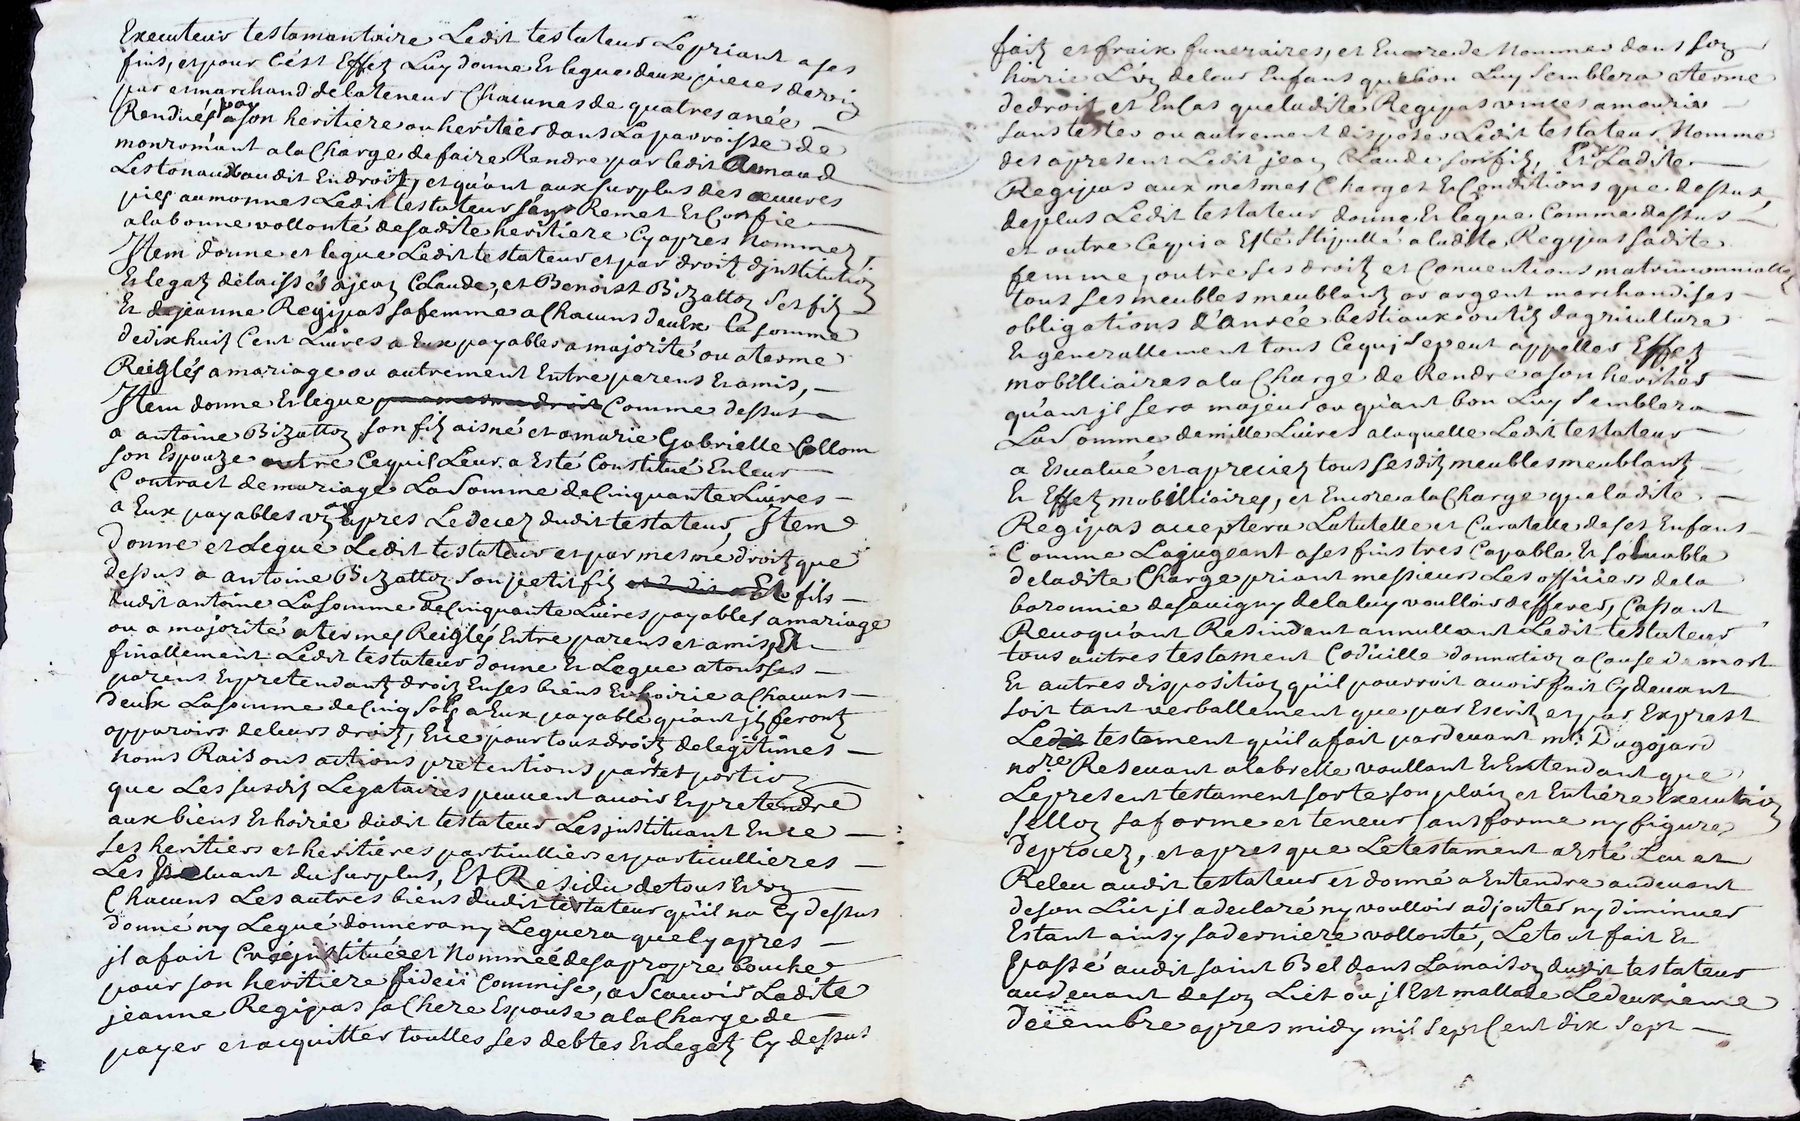 Executeur testamantaire Ledit testateur Le priant a ses
fins, et pour c'ést Effet Luy donne Et legue deux pieces de vin
pur et marchand de la teneur Chacunes de quatres anée
Rendués par a son heritiere ou heritier dans La parroisse de
monromant a la Charge de faire Rendre par ledit Arnaud
Les tonaux audit Endroit, et qu'ant aux surplus des œuvres
pies aumonnes Ledit testateur s'én Remet Et Confie
a la bonne vollonté de sadite heritiere Cy apres Nommez,
Jtem donne et legue Ledit testateur et par droit d'jnstitution
Et legat délaissés a jean Claude, et Benoist Bizatton ses fils
Et de jeanne Regipas sa femme a Chacuns d'eulx la somme
de dix huit Cent Livres a Eux payables a majorité ou a terme
Reiglés a mariage ou autrement Entre parens Et amis,
Jtem donne Et legue par mesme droit Comme dessus
a antoine Bizatton son fils aisné et a marie Gabrielle Collom
son Espouze outre Ce qu'il Leur a Esté Constitué En leur
Contract de mariage La somme de Cinquante Livres
a Eux payables un an apres Le decez dudit testateur, Jtem
donne et Legué Ledit testateur et par mesmé droit que
dessus a antoine Bizatton son petit fils fils
dudit antoine La somme de Cinquante Livres payables a mariage
ou a majorité a termes Reiglés Entre parens et amis, Et
finallement Ledit testateur donne Et Legue a tous ses
parens Et pretendants droit En ses biens Et hoirie a Chacuns
d'eulx La somme de Cinq sols a Eux payable qu'ant jls feront
apparoir de leurs droit, Et ce pour tous droits de legitimes
noms Raisons actions pretentions part et portion
que Les susdits Legataires peuvent avoir Et pretendre
aux biens Et hoirie dudit testateur Les jnstituant En ce
ses heritiers et heritieres particulliers et particullieres
Les Excluant du surplus, Et Residu de tous Et un
Chacuns Les autres biens dudit testateur qu'il na Cy dessus
donné ny Legué donnera ny Leguera que Cy apres
jl a fait Créé jnstituée et Nommeé de sa propre bouche
pour son heritiere fideii Commise, a Scavoir Ladite
jeanne Regipas sa Chere Espouse a la Charge de
payer et acquitter touttes ses debtes Et Legatz Cy dessus
faits et fraix funeraires, et Encore de Nommer dans son
hoirie L'un de leur Enfans que bon Luy Semblera a terme
de droit et En Cas que ladite Regipas vint a mourir
sans tester ou autrement disposer Ledit testateur Nomme
des a present Ledit jean Claude son fils, Et Ladite
Regipas aux mesmes Charges Et Conditions que dessus,
de plus Ledit testateur donne Et legue Comme dessus
et outre Ce qui a Esté stipullé a ladite Regipas sadite
femme, outre ses droits et Conventions matrimonnialles
tous ses meubles meublants or argent marchandises
obligations d'anrée bestiaux outils d'agriculture
Et generallement tous Ce quj se peut appeller Effets
mobilliaires a la Charge de Rendre a son heritier
qu'ant jl sera majeur ou qu'ant bon Luy Semblera
La Somme de mille Livres a laquelle Ledit testateur
a Esvalué et apreciez tous sesdits meubles meublants
Et Effets mobilliaires, et Encore a la Charge que ladite
Regipas acceptera La tutelle et Curatelle de ses Enfans
Comme La jugeant a ses fins tres Capable Et solvable
de ladite Charge priant messieurs Les officiers de la
baronnie de Savigny de la luy voulloir defferer, Cassant
Revoqu'ant Resindant annullant Ledit testateur
tous autres testament Codicille donnation a Cause de mort
Et autres disposition qu'il pourroit avoir fait Cy devant
soit tant verballement que par Escrit, et par Exprest
Ledit testament qu'il a fait pardevant me Dugojard
nore Resevant a labrelle voullant Et Entendant que
Le present testament sorte son plain et Entiére Execution
sellon sa forme et teneur sans forme ny figure
de procez, et apres que Le testament a Esté Leu et
Releu audit testateur et donné a Entendre au devant
de son Lict jl a declaré ny voulloir adjouter ny diminuer
Estant ainsy sa derniere vollonté, Le tout fait Et
passé audit saint Bel dans La maison dudit testateur
au devant de son Lict ou jl Est mallade Le deuxieme
decembre apres midy mil sept Cent dix sept